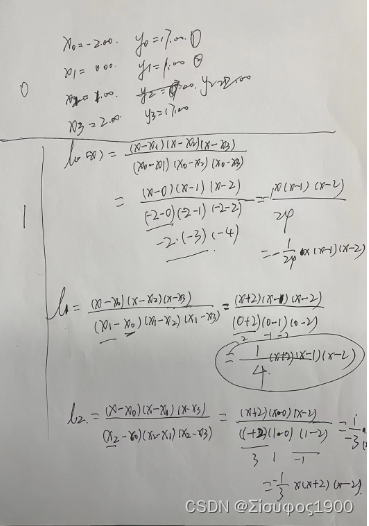 x₀=-2.00. y₀=17.00 0
x₁= 0.00 y₁=1.00 0
0
x₂= 1.00 y₂=2.00
x₃=2.00 y₃=17.00
l₀(x) = (x-x₁)(x-x₂)(x-x₃) / (x₀-x₁)(x₀-x₂)(x₀-x₃)
1
= (x-0)(x-1)(x-2) / (-2-0)(-2-1)(-2-2) = x(x-1)(x-2) / 24
-2·(-3)(-4)
= -1/24 x(x-1)(x-2)
l₁= (x-x₀)(x-x₂)(x-x₃) / (x₁-x₀)(x₁-x₂)(x₁-x₃) = (x+2)(x-1)(x-2) / (0+2)(0-1)(0-2)
2 -1 -2
= 1/4 (x+2)(x-1)(x-2)
l₂= (x-x₀)(x-x₁)(x-x₃) / (x₂-x₀)(x₂-x₁)(x₂-x₃) = (x+2)(x-0)(x-2) / (1+2)(1-0)(1-2) = 1/-3
3 1 -1
= -1/3 x(x+2)(x-2)
CSDN @Σίουφος1900